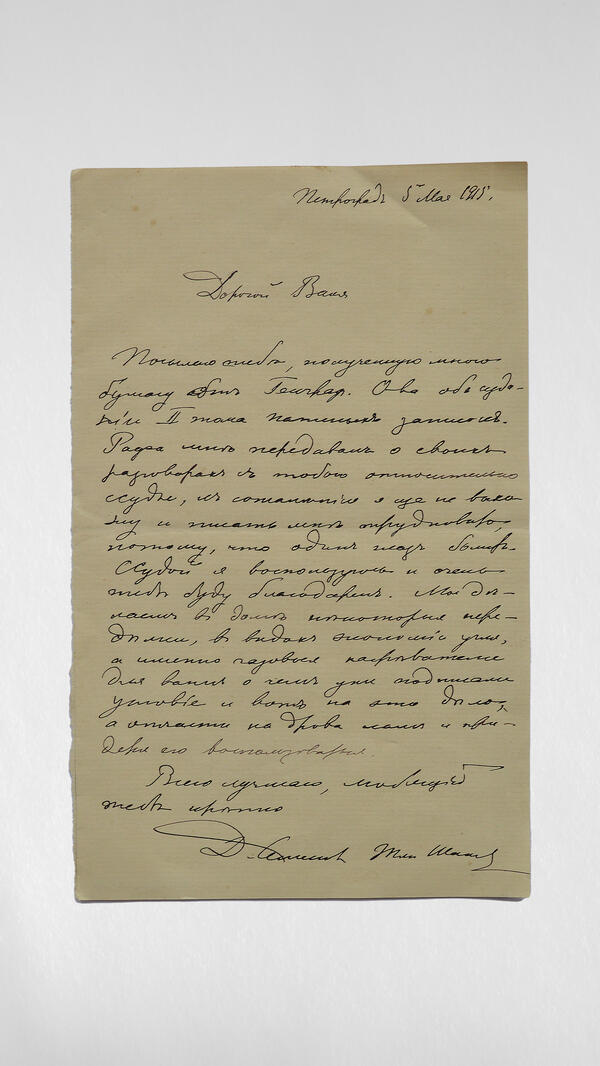 Петроградъ 5 Мая 1915.
Дорогой Ваня
Посылаю тебѣ, полученную мною
бумагу отъ Гончар. Она объ изда-
ніи II тома записокъ.
мнѣ передавалъ о своихъ
разговорахъ съ тобою относительно
ссуды, къ сожалѣнію я еще не выхо-
жу и писать мнѣ трудновато,
потому, что одинъ глазъ
Ссудой я воспользуюсь и очень
тебѣ буду благодаренъ. Мы дѣ-
лаемъ въ домѣ нѣкоторыя пере-
дѣлки, въ видахъ экономіи угля,
а именно газовые нагрѣватели
для ваннъ о чемъ уже подписали
условіе и вотъ на это дѣло,
а отчасти на дрова намъ и при-
дется его
Всего лучшаго, любящій
тебя крѣпко
Д. Семеновъ Тянъ Шанск